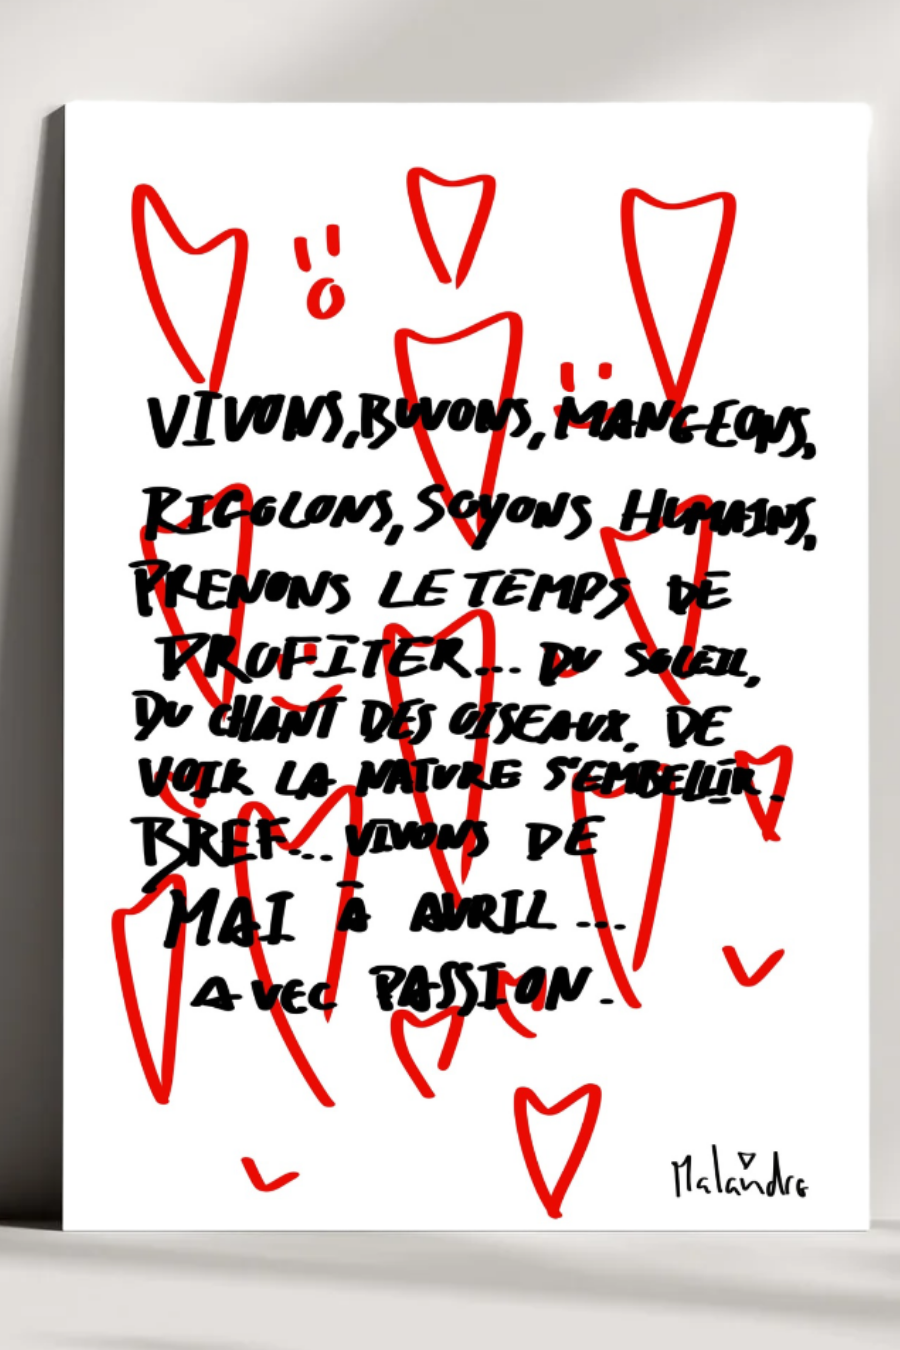 VIVONS, BUVONS, MANGEONS,
RIGOLONS, SOYONS HUMAINS,
PRENONS LE TEMPS DE
PROFITER... DU SOLEIL,
DU CHANT DES OISEAUX, DE
VOIR LA NATURE S'EMBELLIR.
BREF... VIVONS DE
MAI À AVRIL ...
AVEC PASSION.
Malandre